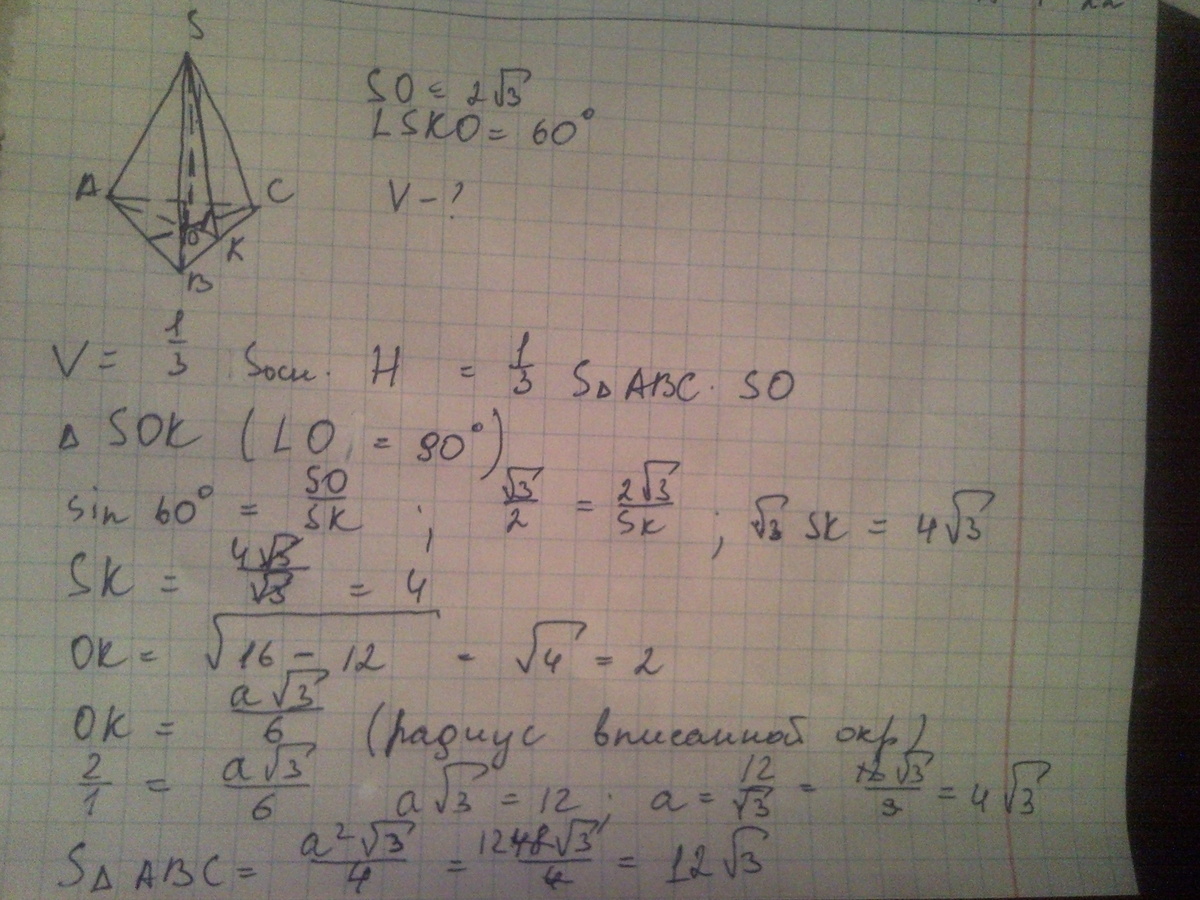 22
S
SO = 2√3
∠SKO = 60°
V - ?
A
C
O
K
B
V = 1/3 Sосн. H = 1/3 S△ABC · SO
△ SOK (∠O = 90°)
sin 60° = SO/SK ; √3/2 = 2√3/SK ; √3 SK = 4√3
SK = 4√3/√3 = 4
OK = √16 - 12 - √4 = 2
OK = a√3/6 (радиус вписанной окр)
2/1 = a√3/6 a√3 = 12 ; a = 12/√3 = 12√3/3 = 4√3
S△ABC = a²√3/4 = 12 48√3/4 = 12√3